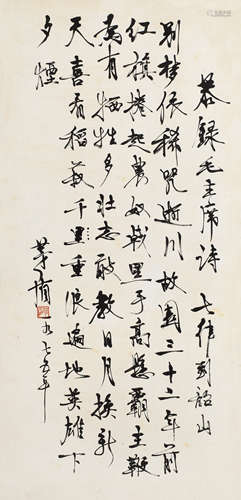 恭錄毛主席詩 七律到韶山
別梦依稀咒逝川故園三十二年前
红旗捲起農奴戟黑手高懸霸主鞭
為有牺牲多壮志敢教日月换新
天喜看稻菽千里重浪遍地英雄下
夕煙
一九七五年